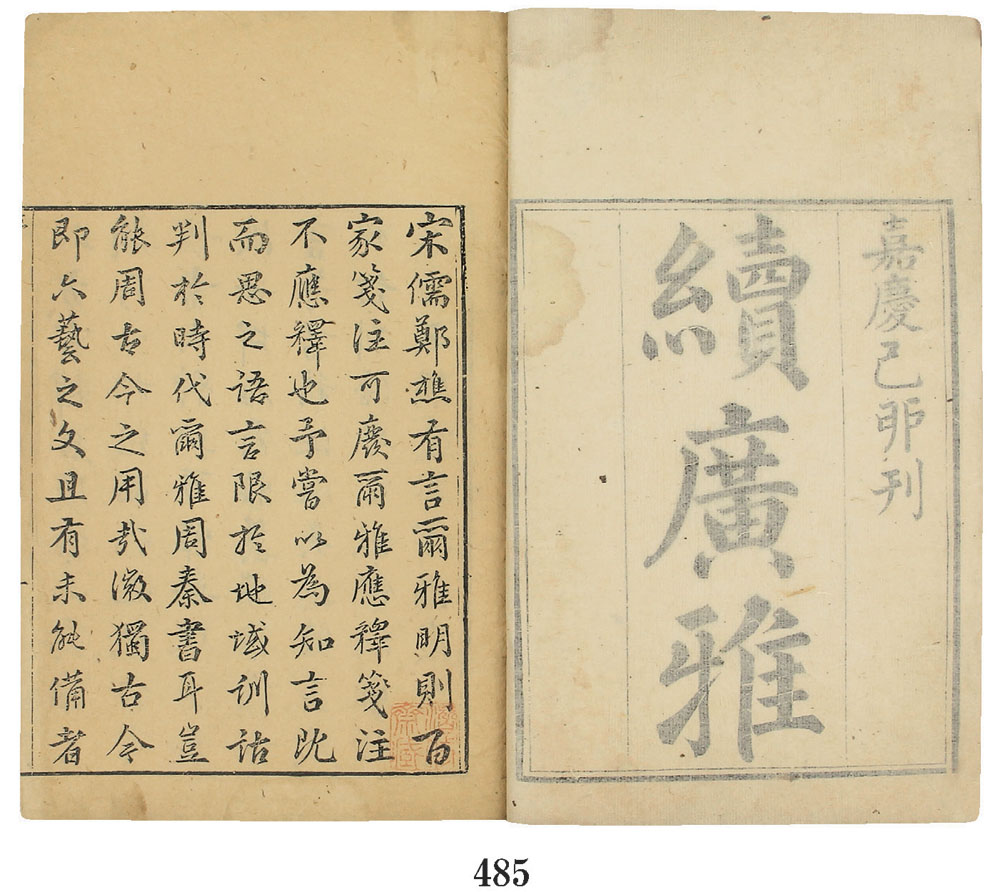 嘉慶己卯刊
續廣雅
宋儒鄭樵有言爾雅明則百
家箋注可廢爾雅應釋箋注
不應釋也予嘗以為知言既
而思之語言限於地域訓詁
判於時代爾雅周秦書耳豈
能周古今之用哉微獨古今
即六藝之文且有未能備者
485